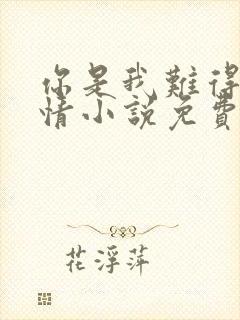 你是我難得
情小說免費
花浮萍